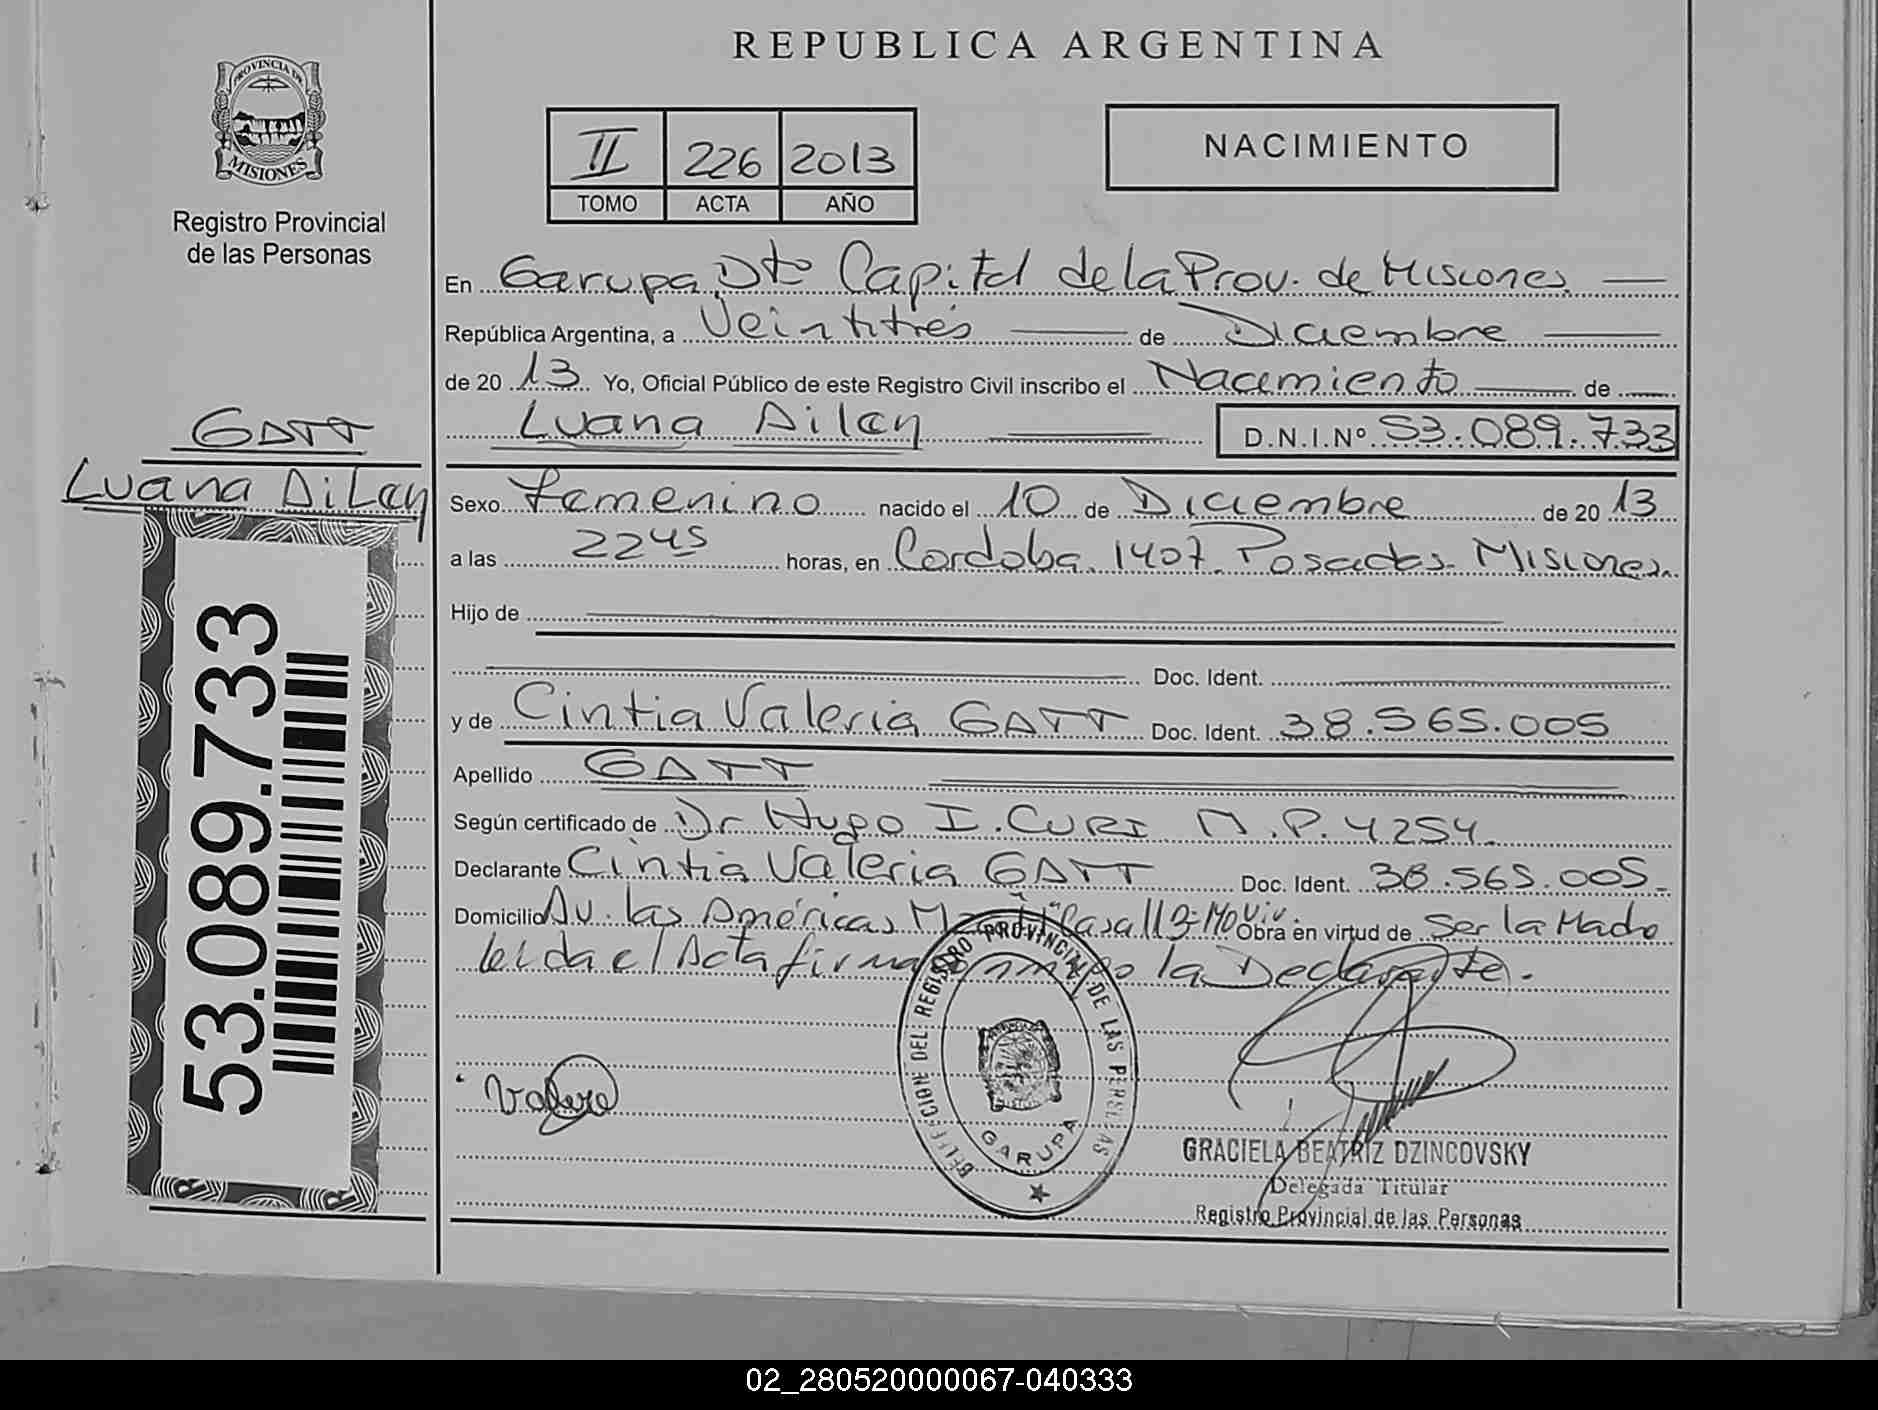 REPUBLICA ARGENTINA
PROVINCIA DE
MISIONES
Registro Provincial
de las Personas
II 226 2013
TOMO ACTA AÑO
NACIMIENTO
En Garupa Dto Capital de la Prov. de Misiones
República Argentina, a Veintitrés de Diciembre
de 20 13 Yo, Oficial Público de este Registro Civil inscribo el Nacimiento de
Luana Ailen D.N.I.Nº 53.089.733
GATT
Luana Ailen
53.089.733
Sexo Femenino nacido el 10 de Diciembre de 20 13
a las 2245 horas, en Cordoba 1407 Posadas Misiones
Hijo de
Doc. Ident.
y de Cintia Valeria GATT Doc. Ident. 38.565.005
Apellido GATT
Según certificado de Dr Hugo I. CURI M.P. 4254.
Declarante Cintia Valeria GATT Doc. Ident. 38.565.005
Domicilio Av. las Américas Casa 113-140 Viv. Obra en virtud de Ser la Madre
leida el Acta firma la Declarante.
DELEGACION DEL REGISTRO PROVINCIAL DE LAS PERSONAS
GARUPA
GRACIELA BEATRIZ DZINCOVSKY
Delegada Titular
Registro Provincial de las Personas
02_280520000067-040333